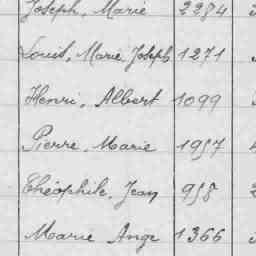 Joseph, Marie 2284
Louis, Marie Joseph 1271
Henri, Albert 1099
Pierre, Marie 1957
Théophile, Jean 958
Marie Ange 1366